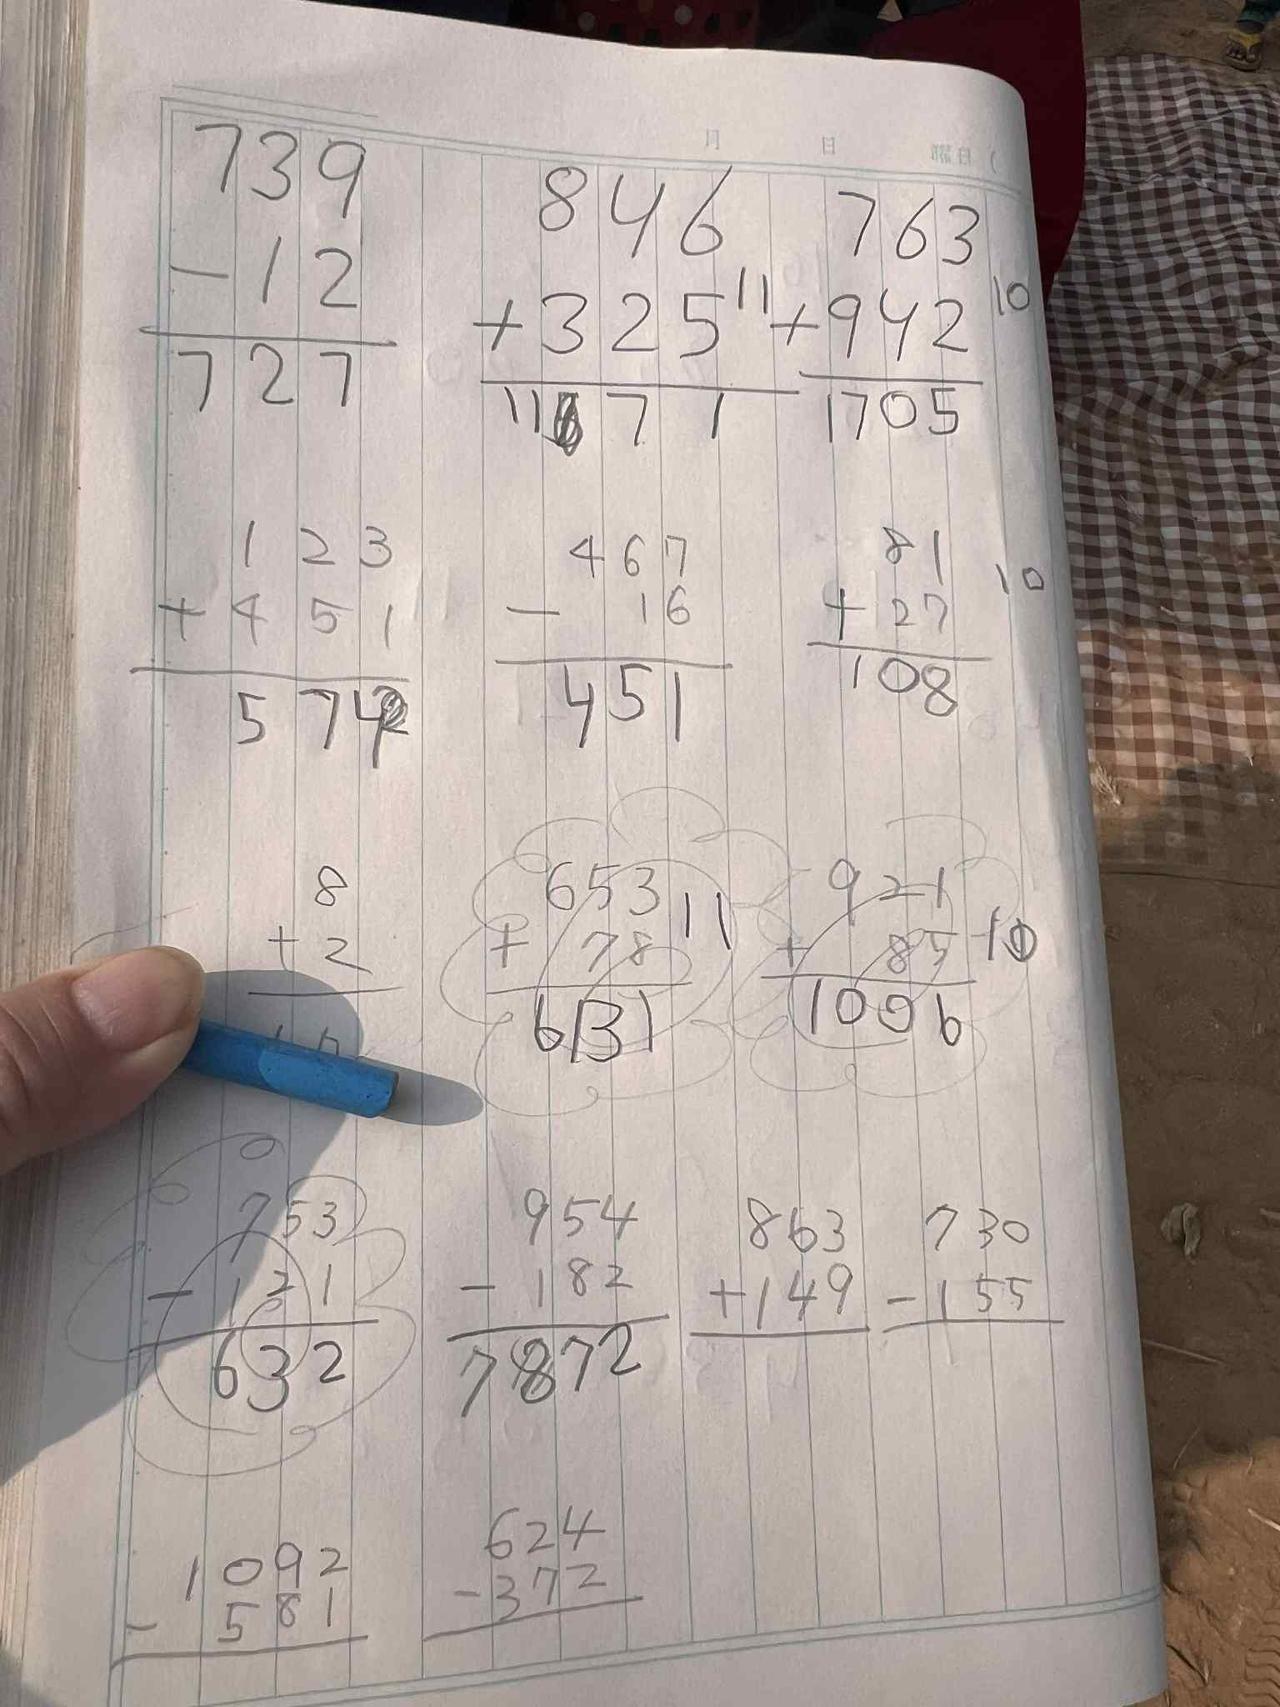 月 日 曜日(
739
-12
727
846
+325 11
1171
763
+942 10
1705
123
+451
574
467
-16
451
81
+27 10
108
8
+2
653
+78 11
6131
921
+85 10
1006
0
753
-121
632
954
-182
7872
863
+149
730
-155
1092
-581
624
-372